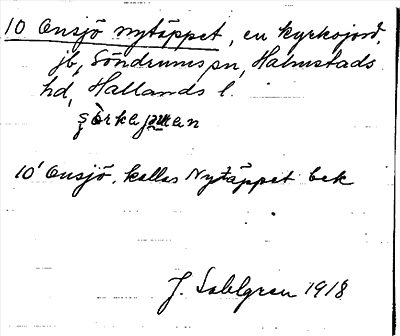 10 Onsjö nytäppet, en kyrkojord,
jb, Söndrums sn, Halmstads
hd, Hallands l.
10' Onsjö, kallas Nytäppet bek
J. Sahlgren 1918